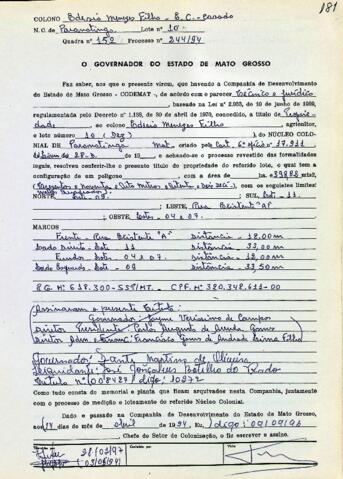 181
COLONO Edezio Menezes Filho - E.C. - Casado
N. C. de Paranatinga Lote nº 10
Quadra nº 152 Processo nº 244/94
O GOVERNADOR DO ESTADO DE MATO GROSSO
Faz saber, aos que o presente virem, que havendo a Companhia de Desenvolvimento
do Estado de Mato Grosso - CODEMAT -, de acordo com o parecer Técnico e Jurídico
baseado na Lei nº 2.083, de 19 de junho de 1969,
regulamentada pelo Decreto nº 1.138, de 30 de abril de 1970, concedido, a título de
dade ao Edezio Menezes Filho, agricultor,
o lote nº 10 (Dez) do NÚCLEO COLO-
NIAL DE Paranatinga Mat. criado pel 17.211
de 19 e achando-se o processo revestido das formalidades
legais, resolveu conferir-lhe o presente título de propriedade do referido lote, o qual tem a
configuração de um polígono com a área de ha. 398 m²
(Trezentos e noventa e Oito Metros) com os seguintes limites:
NORTE, Lote 09. SUL Lote 11.
LESTE, Rua Existente "A"
OESTE, Lotes 04 e 07.
MARCOS
Frente Rua Existente "A" Distância 12,00 m
Lado Direito Lote 11 Distância 33,00 m
Fundos Lotes 04 e 07 Distância 12,00 m
Lado Esquerdo Lote 09 Distância 33,50 m
R.G. Nº 618.300-SSP/MT. CPF. Nº 320.348.611-00
Assinaram o presente título:
Governador: Jayme Verissimo de Campos
Diretor Presidente: Carlos Augusto de Arruda Gomes
Diretor Adm e Financ: Francisco Gomes de Andrade Lima Filho
Governador: Dante Martins de Oliveira
Liquidante: José Gonçalves Botelho do Prado
Título nº 008427 / digo: 10272
Como tudo consta do memorial e planta que ficam arquivados nesta Companhia, juntamente
com o processo de medição e loteamento do referido Núcleo Colonial.
Dado e passado na Companhia de Desenvolvimento do Estado de Mato Grosso,
aos 14 dias do mês de abril de 1994, Eu, digo: 09/09/96
Chefe do Setor de Colonização, o fiz escrever e assino.
28/02/97